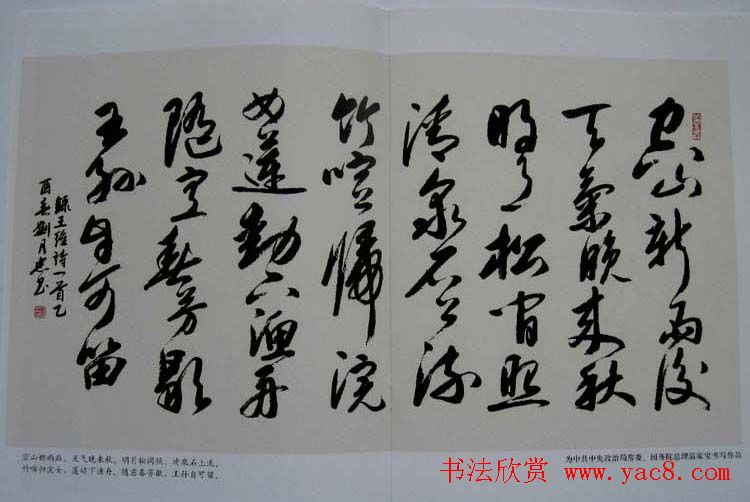 空山新雨後
天氣晚来秋
明月松間照
清泉石上流
竹喧歸浣
女蓮動下漁舟
隨意春芳歇
王孫自可留
錄王維詩一首乙
酉春劉月忠書
空山新雨后，天气晚来秋。明月松间照，清泉石上流。
竹喧归浣女，莲动下渔舟。随意春芳歇，王孙自可留。
为中共中央政治局常委、国务院总理温家宝书写作品
书法欣赏
www.yac8.com